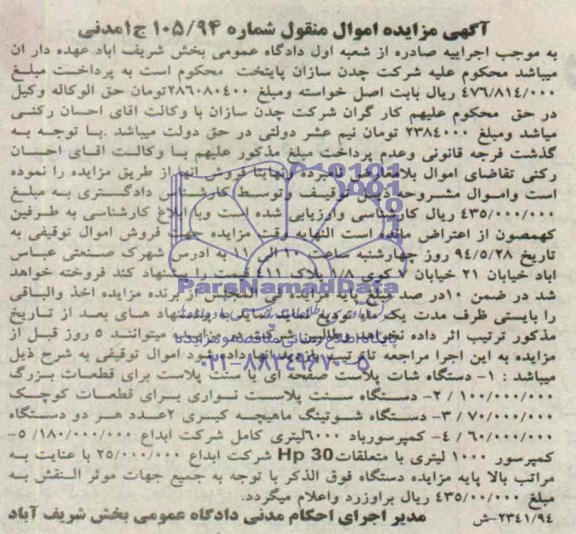 آگهی مزایده اموال منقول شماره ۱۰۵/۹۴ ج۱مدنی
به موجب اجراییه صادره از شعبه اول دادگاه عمومی بخش شریف اباد عهده دار ان
میباشد محکوم علیه شرکت چدن سازان پایتخت محکوم است به پرداخت مبلغ
۴۷۶/۸۱۴/۰۰۰ ریال بابت اصل خواسته ومبلغ ۲۸۶۰۸۰۴۰۰تومان حق الوکاله وکیل
در حق محکوم علیهم کار گران شرکت چدن سازان با وکالت اقای احسان رکنی
میاشد ومبلغ ۲۳۸۴۰۰۰ تومان نیم عشر دولتی در حق دولت میباشد .با توجه به
گذشت فرجه قانونی وعدم پرداخت مبلغ مذکور علیهم با وکالت اقای احسان
رکنی تقاضای اموال بلامعارض نامبرده ونهایتا فروش انها از طریق مزایده را نموده
است واموال مشروحه ذیل توقیف وتوسط کارشناس دادگستری به مبلغ
۴۳۵/۰۰۰/۰۰۰ ریال کارشناسی وارزیابی شده است وبا ابلاغ کارشناسی به طرفین
کهمصون از اعتراض مانده است النهایه وقت مزایده جهت فروش اموال توقیفی به
تاریخ ۹۴/۵/۲۸ روز چهارشنبه ساعت ۱۰ الی ۱۱ به ادرس شهرک صنعتی عباس
اباد خیابان ۲۱ خیابان ۷ کوی ۱/۸ پلاک ۱۱ قیمت را پیشنهاد کند فروخته خواهد
شد در ضمن ۱۰در صد مبلغ پایه مزایده فی المجلس از برنده مزایده اخذ والباقی
را بایستی ظرف مدت یک ماه تودیع نمایند به پیشنهاد های بعد از تاریخ
مذکور ترتیب اثر داده نخواهد شد طالبین شرکت در مزایده میتوانند ۵ روز قبل از
مزایده به این اجرا مراجعه تا ترتیب بازدید انها داده شود اموال توقیفی به شرح ذیل
میباشد : ۱- دستگاه شات پلاست صفحه ای یا سنت پلاست برای قطعات بزرگ
۱۰۰/۰۰۰/۰۰۰ / ۲- دستگاه سنت پلاست نواری برای قطعات کوچک
۷۰/۰۰۰/۰۰۰ / ۳- دستگاه شوتینگ ماهیچه گیری ۲عدد هر دو دستگاه
۶۰/۰۰۰/۰۰۰ / ۴- کمپرسورباد ۶۰۰۰لیتری کامل شرکت ابداع ۱۸۰/۰۰۰/۰۰۰/ ۵-
کمپرسور ۱۰۰۰ لیتری با متعلقات Hp 30 شرکت ابداع ۲۵/۰۰۰/۰۰۰ با عنایت به
مراتب بالا پایه مزایده دستگاه فوق الذکر با توجه به جمیع جهات موثر النقش به
مبلغ ۴۳۵/۰۰/۰۰۰ ریال براوزرد واعلام میگردد.
۲۳۴۱/۹۴-ش مدیر اجرای احکام مدنی دادگاه عمومی بخش شریف آباد
ParsNamadData
پایگاه اطلاع رسانی مناقصه و مزایده
۰۲۱-۸۸۳۴۹۶۷۰-۵